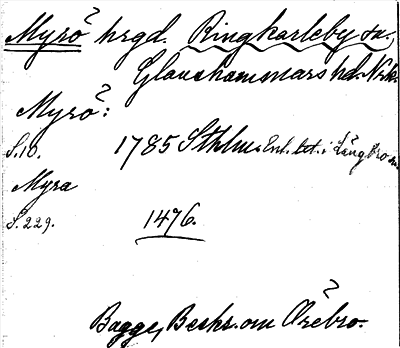 Myrö hrgd. Ringkarleby sn.,
Glanshammars hd. Nrk.
Myrö:
S. 10. 1785 Sthlm. Enl. tet. i Längbro sn.
Myra
S. 229. 1476.
Bagge, Beskr. om Örebro.